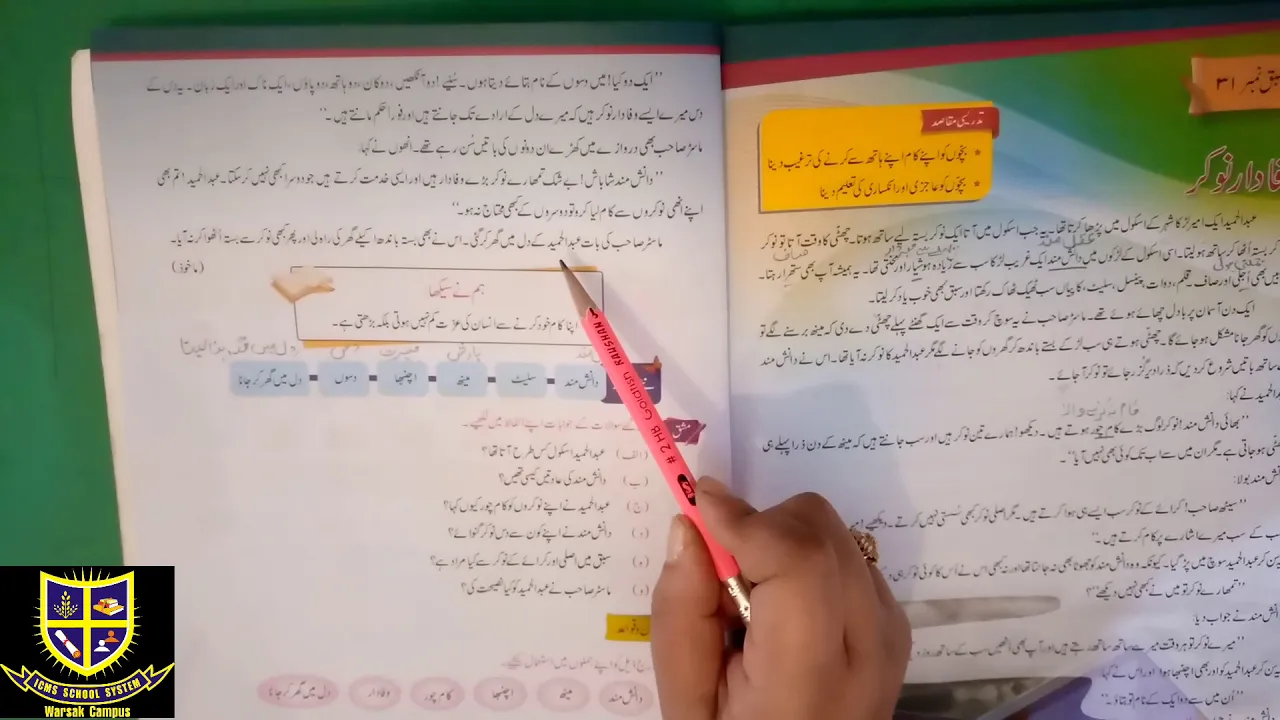 سبق نمبر ۳۱
تدریسی مقاصد
* بچوں کو اپنے کام اپنے ہاتھ سے کرنے کی ترغیب دینا
* بچوں کو عاجزی اور انکساری کی تعلیم دینا
دار نوکر
عبدالحمید ایک امیر لڑکا شہر کے اسکول میں پڑھا کرتا تھا۔ یہ جب اسکول میں آتا ایک نوکر بستہ لیے ساتھ ہوتا۔ چھٹی کا وقت آتا تو نوکر
عقل مند
بستہ اٹھا کر ساتھ ہو لیتا۔ اسی اسکول کے لڑکوں میں دانش مند ایک غریب لڑکا سب سے زیادہ ہوشیار اور محنتی تھا۔ یہ ہمیشہ آپ بھی ستھرا رہتا۔
صاف
میں بھی اُجلی اور صاف۔ قلم، دوات، پینسل، سلیٹ، کاپیاں سب ٹھیک ٹھاک رکھتا اور سبق بھی خوب یاد کر لیتا۔
ایک دن آسمان پر بادل چھائے ہوئے تھے۔ ماسٹر صاحب نے یہ سوچ کر وقت سے ایک گھنٹے پہلے چھٹی دے دی کہ مینھ برسنے لگے تو
کو گھر جانا مشکل ہو جائے گا۔ چھٹی ہوتے ہی سب لڑکے بستے باندھ کر گھروں کو جانے لگے مگر عبدالحمید کا نوکر نہ آیا تھا۔ اس نے دانش مند
ساتھ باتیں شروع کر دیں کہ ذرا دیر گزر جائے تو نوکر آ جائے۔
نے کہا:
"بھائی دانش مند! نوکر لوگ بڑے کام چور ہوتے ہیں۔ دیکھو! ہمارے تین نوکر ہیں اور سب جانتے ہیں کہ مینھ کے دن ذرا پہلے ہی
ہو جاتی ہے۔ مگر ان میں سے اب تک کوئی بھی نہیں آیا"۔
بولا:
"سیٹھ صاحب! کرائے کے نوکر سب ایسے ہی ہوا کرتے ہیں۔ مگر اصلی نوکر کبھی سُستی نہیں کرتے۔ دیکھیے!
کے سب میرے اشارے پر کام کرتے ہیں۔"
کر عبدالحمید سوچ میں پڑ گیا۔ کیونکہ وہ دانش مند کو جھوٹا بھی نہ جانتا تھا اور نہ کبھی اس نے اُس کا کوئی نوکر ہی
"تمھارے نوکر تو میں نے کبھی نہیں دیکھے؟"
مند نے جواب دیا:
"میرے نوکر تو ہر وقت میرے ساتھ ساتھ رہتے ہیں اور آپ بھی انھیں سب کے ساتھ روز
کر عبدالحمید کو اور بھی اچنبھا ہوا اور اس نے کہا
"اُن میں سے دو ایک کے نام تو بتاؤ"۔
"ایک دو کیا! میں دسوں کے نام بتائے دیتا ہوں۔ سُنیے! دو آنکھیں، دو کان، دو ہاتھ، دو پاؤں، ایک ناک اور ایک زبان۔ یہ دس کے
دس میرے ایسے وفادار نوکر ہیں کہ میرے دل کے ارادے تک جانتے ہیں اور فوراً حکم مانتے ہیں۔"
ماسٹر صاحب بھی دروازے میں کھڑے ان دونوں کی باتیں سُن رہے تھے۔ انھوں نے کہا:
"دانش مند شاباش! بے شک تمھارے نوکر بڑے وفادار ہیں اور ایسی خدمت کرتے ہیں جو دوسرا کبھی نہیں کر سکتا۔ عبدالحمید! تم بھی
اپنے انھی نوکروں سے کام لیا کرو تو دوسروں کے کبھی محتاج نہ ہو۔"
ماسٹر صاحب کی بات عبدالحمید کے دل میں گھر کر گئی۔ اس نے بھی بستہ باندھ اکیلے گھر کی راہ لی اور پھر کبھی نوکر سے بستہ اُٹھوا کر نہ آیا۔
(ماخوذ)
ہم نے سیکھا
اپنا کام خود کرنے سے انسان کی عزت کم نہیں ہوتی بلکہ بڑھتی ہے۔
دانش مند سلیٹ مینھ اچنبھا دسوں دل میں گھر کر جانا
مشق
کے سوالات کے جوابات اپنے الفاظ میں لکھیے۔
(الف) عبدالحمید اسکول کس طرح آتا تھا؟
(ب) دانش مند کی عادتیں کیسی تھیں؟
(ج) عبدالحمید نے اپنے نوکروں کو کام چور کیوں کہا؟
(د) دانش مند نے اپنے کون سے دس نوکر گنوائے؟
(ہ) سبق میں اصلی اور کرائے کے نوکر سے کیا مراد ہے؟
(و) ماسٹر صاحب نے عبدالحمید کو کیا نصیحت کی؟
و قواعد
درج ذیل کو اپنے جملوں میں استعمال کیجیے۔
دانش مند مینھ اچنبھا کام چور وفادار دل میں گھر کر جانا
# 2 HB Goldfish RAUSHAN
ICMS SCHOOL SYSTEM
Warsak Campus